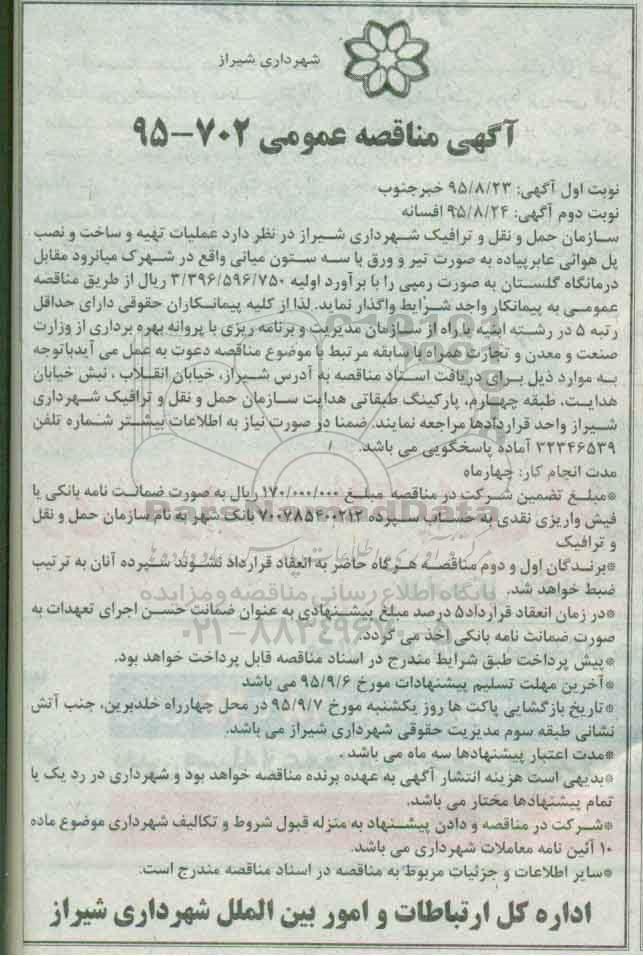 شهرداری شیراز
آگهی مناقصه عمومی ۷۰۲-۹۵
نوبت اول آگهی: ۹۵/۸/۲۳ خبرجنوب
نوبت دوم آگهی: ۹۵/۸/۲۴ افسانه
سازمان حمل و نقل و ترافیک شهرداری شیراز در نظر دارد عملیات تهیه و ساخت و نصب
پل هوائی عابرپیاده به صورت تیر و ورق با سه ستون میانی واقع در شهرک میانرود مقابل
درمانگاه گلستان به صورت رمپی را با برآورد اولیه ۳/۳۹۶/۵۹۶/۷۵۰ ریال از طریق مناقصه
عمومی به پیمانکار واجد شرایط واگذار نماید. لذا از کلیه پیمانکاران حقوقی دارای حداقل
رتبه ۵ در رشته ابنیه یا راه از سازمان مدیریت و برنامه ریزی یا پروانه بهره برداری از وزارت
صنعت و معدن و تجارت همراه با سابقه مرتبط با موضوع مناقصه دعوت به عمل می آید باتوجه
به موارد ذیل برای دریافت اسناد مناقصه به آدرس شیراز، خیابان انقلاب ، نبش خیابان
هدایت، طبقه چهارم، پارکینگ طبقاتی هدایت سازمان حمل و نقل و ترافیک شهرداری
شیراز واحد قراردادها مراجعه نمایند. ضمنا در صورت نیاز به اطلاعات بیشتر شماره تلفن
۳۲۳۴۶۵۳۹ آماده پاسخگویی می باشد.
مدت انجام کار: چهارماه
*مبلغ تضمین شرکت در مناقصه مبلغ ۱۷۰/۰۰۰/۰۰۰ ریال به صورت ضمانت نامه بانکی یا
فیش واریزی نقدی به حساب سپرده ۷۰۰۷۸۵۴۰۰۲۱۲ بانک شهر به نام سازمان حمل و نقل
و ترافیک
*برندگان اول و دوم مناقصه هرگاه حاضر به انعقاد قرارداد نشوند سپرده آنان به ترتیب
ضبط خواهد شد.
*در زمان انعقاد قرارداد ۵ درصد مبلغ پیشنهادی به عنوان ضمانت حسن اجرای تعهدات به
صورت ضمانت نامه بانکی اخذ می گردد.
*پیش پرداخت طبق شرایط مندرج در اسناد مناقصه قابل پرداخت خواهد بود.
*آخرین مهلت تسلیم پیشنهادات مورخ ۹۵/۹/۶ می باشد
*تاریخ بازگشایی پاکت ها روز یکشنبه مورخ ۹۵/۹/۷ در محل چهارراه خلدبرین، جنب آتش
نشانی طبقه سوم مدیریت حقوقی شهرداری شیراز می باشد.
*مدت اعتبار پیشنهادها سه ماه می باشد .
*بدیهی است هزینه انتشار آگهی به عهده برنده مناقصه خواهد بود و شهرداری در رد یک یا
تمام پیشنهادها مختار می باشد.
*شرکت در مناقصه و دادن پیشنهاد به منزله قبول شروط و تکالیف شهرداری موضوع ماده
۱۰ آئین نامه معاملات شهرداری می باشد.
*سایر اطلاعات و جزئیات مربوط به مناقصه در اسناد مناقصه مندرج است.
اداره کل ارتباطات و امور بین الملل شهرداری شیراز
ParsNamadData
پایگاه اطلاع رسانی مناقصه و مزایده